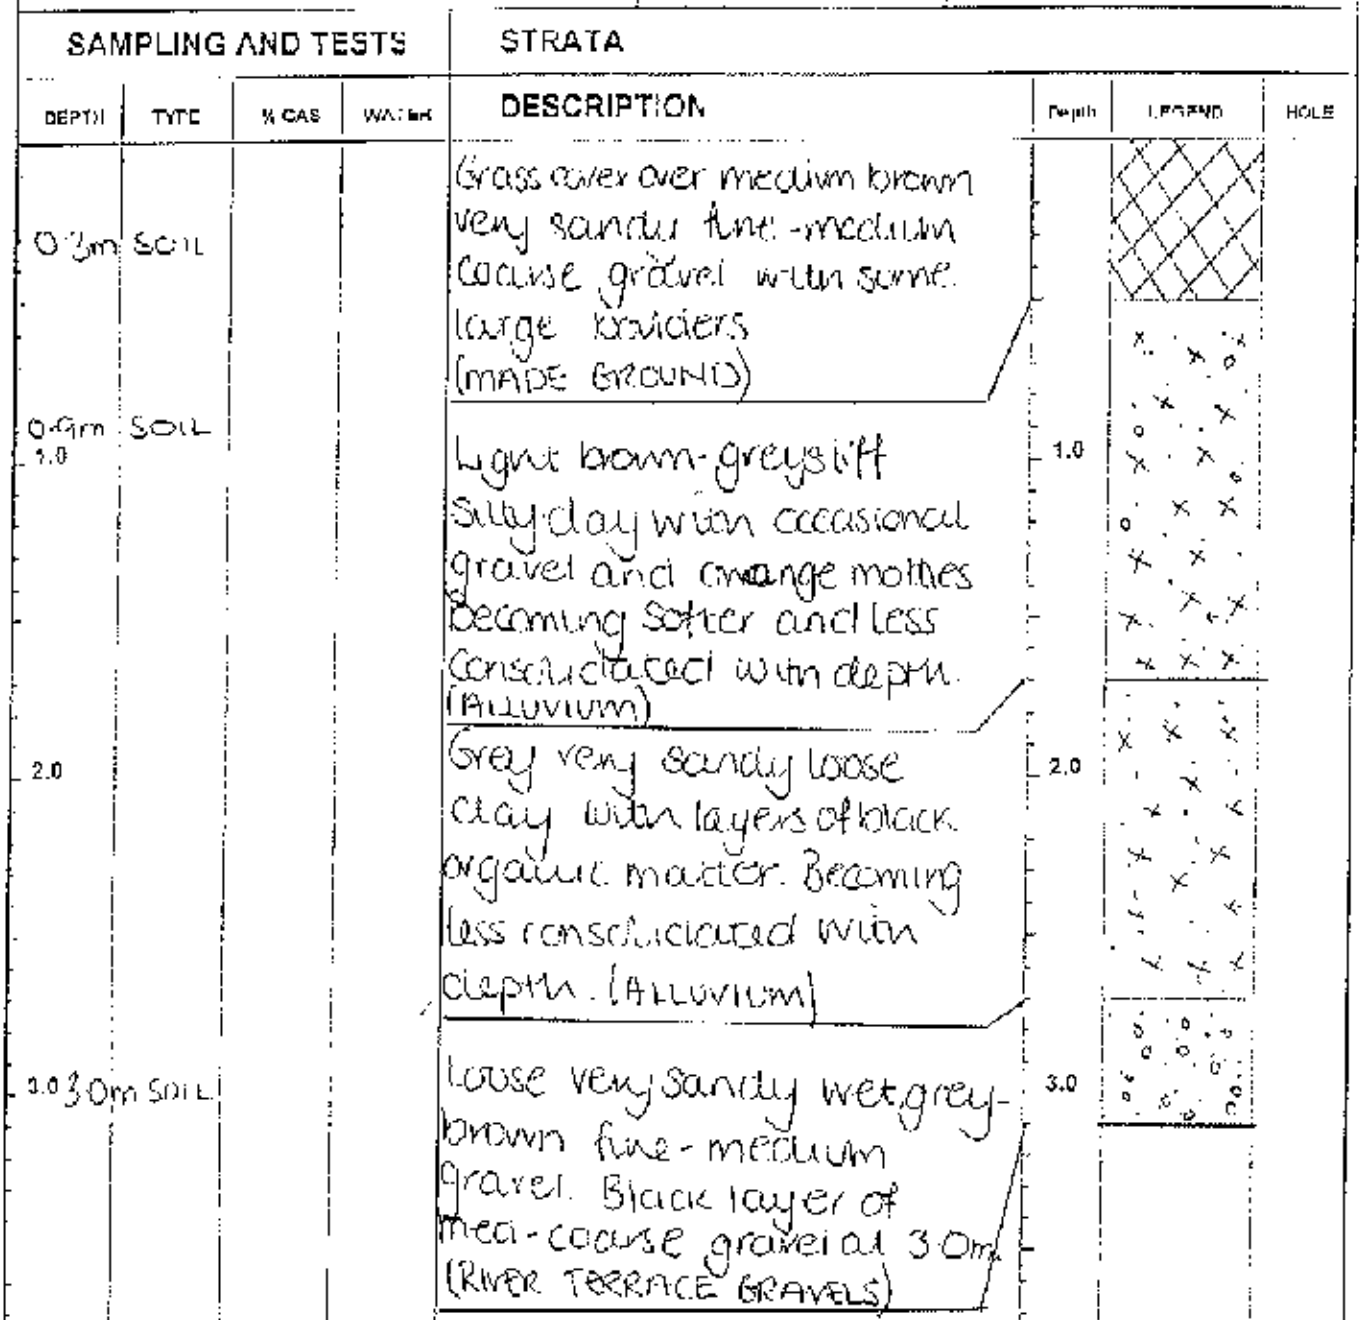 SAMPLING AND TESTS STRATA
DEPTH TYPE % GAS WATER DESCRIPTION Depth LEGEND HOLE
Grass cover over medium brown
very sandy fine-medium
0.3m SOIL
coarse gravel with some
large boulders
(MADE GROUND)
0.9m SOIL
1.0 Light brown-grey stiff 1.0
silty clay with occasional
gravel and orange mottles
becoming softer and less
consolidated with depth.
(ALLUVIUM)
Grey very sandy loose
2.0 2.0
clay with layers of black
organic matter. Becoming
less consolidated with
depth. (ALLUVIUM)
3.0 3.0m SOIL Loose very sandy wet grey- 3.0
brown fine-medium
gravel. Black layer of
med-coarse gravel at 3.0m
(RIVER TERRACE GRAVELS)